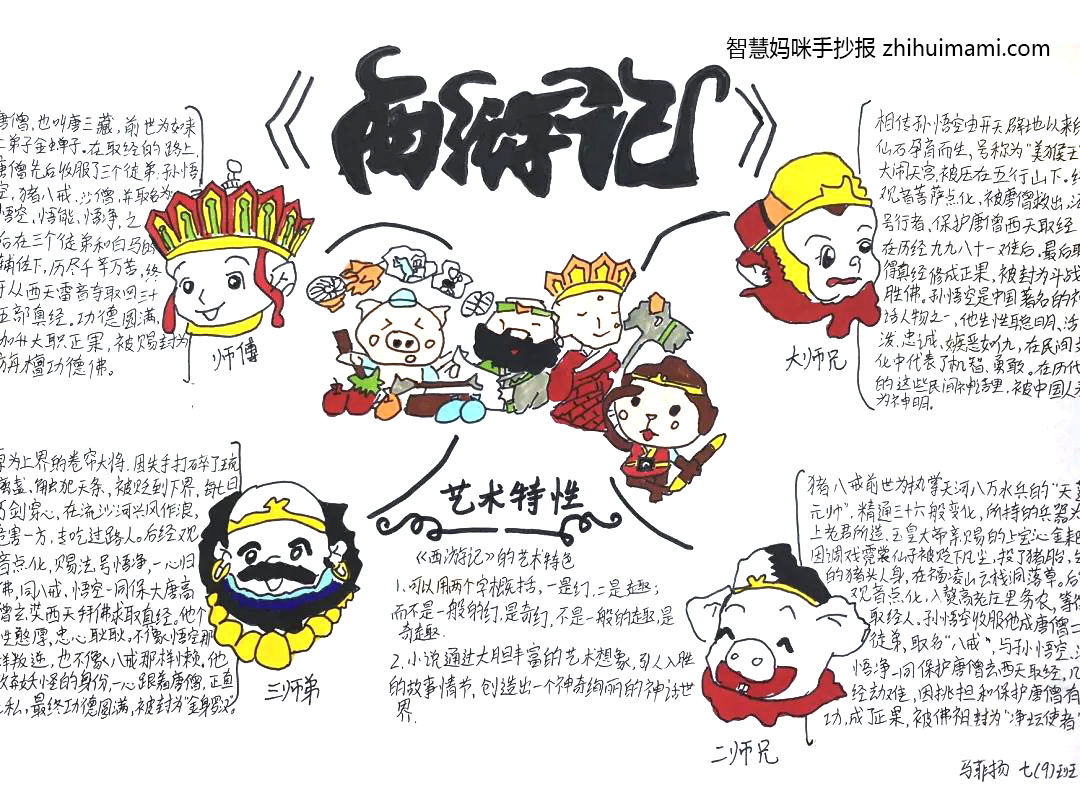 智慧妈咪手抄报 zhihuimami.com
《西游记》
唐僧,也叫唐三藏,前世为如来
二弟子金蝉子。在取经的路上,
唐僧先后收服了三个徒弟:孙悟
空,猪八戒,沙僧,并取名为
悟空,悟能,悟净,之
后在三个徒弟和白马的
辅佐下,历尽千辛万苦,终
于从西天雷音寺取回三十
五部真经。功德圆满,
加升大职正果,被赐封为
旃檀功德佛。
师傅
相传孙悟空由开天辟地以来的
仙石孕育而生,号称为“美猴王”
大闹天宫,被压在五行山下。经
观音菩萨点化,被唐僧救出,法
号行者,保护唐僧西天取经
在历经九九八十一难后,最后取
得真经修成正果,被封为斗战
胜佛。孙悟空是中国著名的神
话人物之一,他生性聪明、活
泼、忠诚、嫉恶如仇,在民间文
化中代表了机智、勇敢。在历代
的这些民间神话里,被中国人
为神明。
大师兄
原为上界的卷帘大将,因失手打碎了琉
璃盏,触犯天条,被贬到下界,每七日
万剑穿心,在流沙河兴风作浪,
危害一方,专吃过路人。后经观
音点化,赐法号悟净,一心归
佛,同八戒、悟空一同保大唐高
僧玄奘西天拜佛求取真经。他个
性憨厚,忠心耿耿。不像悟空那
样叛逆,也不像八戒那样懒。他
放弃妖怪的身份,一心跟着唐僧,正直
无私,最终功德圆满,被封为“金身罗汉”。
三师弟
艺术特性
《西游记》的艺术特色
1.可以用两个字概括,一是幻,二是趣;
而不是一般的幻,是奇幻,不是一般的趣,是
奇趣。
2.小说通过大胆丰富的艺术想象,引人入胜
的故事情节,创造出一个神奇绚丽的神话世
界.
猪八戒前世为执掌天河八万水兵的“天蓬
元帅”,精通三十六般变化,所持的兵器为
上老君所造、玉皇大帝亲赐的上宝沁金耙
因调戏霓裳仙子被贬下凡尘,投了猪胎,
的猪头人身,在福凌山云栈洞落草。后
观音点化,入赘高老庄里务农,等候
取经人。孙悟空收服他成唐僧二
徒弟,取名“八戒”,与孙悟空、沙
悟净一同保护唐僧去西天取经,
经劫难,因挑担和保护唐僧有
功,成了正果,被佛祖封为“净坛使者”
二师兄
马菲扬 七(9)班